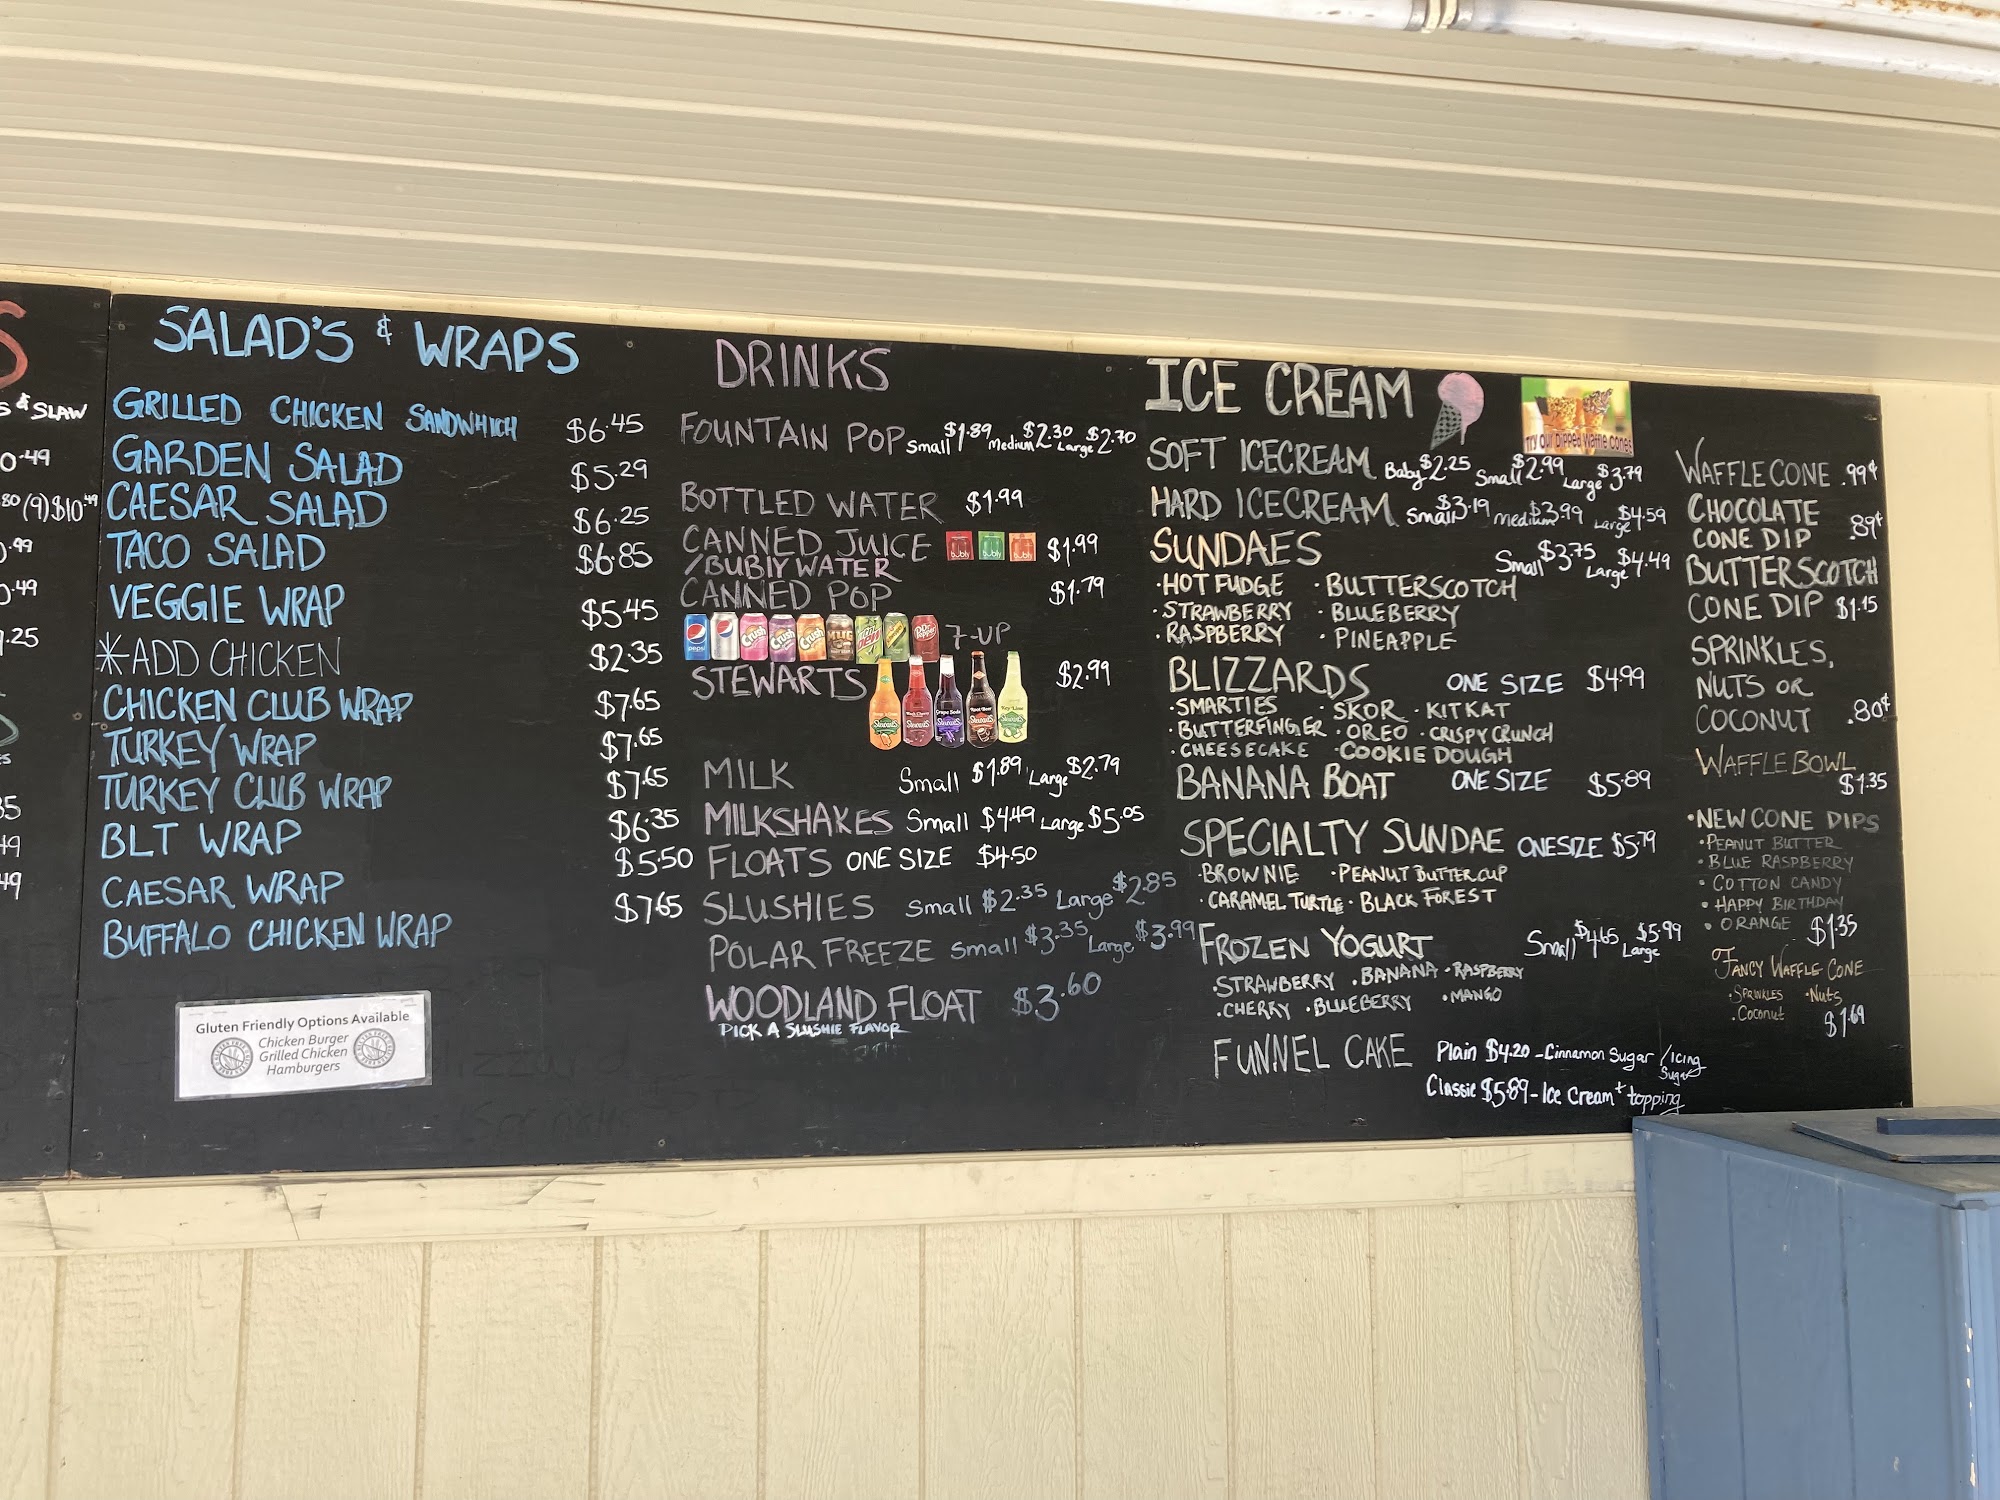 S
S & SLAW
0.49
.80 (9) $10.49
.99
0.49
.25
35
49
49
SALAD'S & WRAPS
GRILLED CHICKEN SANDWHICH $6.45
GARDEN SALAD $5.29
CAESAR SALAD $6.25
TACO SALAD $6.85
VEGGIE WRAP $5.45
*ADD CHICKEN $2.35
CHICKEN CLUB WRAP $7.65
TURKEY WRAP $7.65
TURKEY CLUB WRAP $7.65
BLT WRAP $6.35
CAESAR WRAP $5.50
BUFFALO CHICKEN WRAP $7.65
Gluten Friendly Options Available
Chicken Burger
Grilled Chicken
Hamburgers
DRINKS
FOUNTAIN POP Small $1.89 Medium $2.30 Large $2.70
BOTTLED WATER $1.99
CANNED JUICE bubly bubly bubly $1.99
/BUBLY WATER
CANNED POP $1.79
pepsi Crush Crush Crush MUG Dr Pepper 7-UP
STEWARTS $2.99
Stewart's Stewart's Stewart's Stewart's Stewart's
MILK Small $1.89 Large $2.79
MILKSHAKES Small $4.49 Large $5.05
FLOATS ONE SIZE $4.50
SLUSHIES Small $2.35 Large $2.85
POLAR FREEZE Small $3.35 Large $3.99
WOODLAND FLOAT $3.60
PICK A SLUSHIE FLAVOR
ICE CREAM
Try our Dipped Waffle Cones
SOFT ICECREAM Baby $2.25 Small $2.99 Large $3.79
HARD ICECREAM Small $3.19 Medium $3.99 Large $4.59
SUNDAES Small $3.75 Large $4.49
·HOT FUDGE ·BUTTERSCOTCH
·STRAWBERRY ·BLUEBERRY
·RASPBERRY ·PINEAPPLE
BLIZZARDS ONE SIZE $4.99
·SMARTIES ·SKOR ·KITKAT
·BUTTERFINGER ·OREO ·CRISPY CRUNCH
·CHEESECAKE ·COOKIE DOUGH
BANANA BOAT ONE SIZE $5.89
SPECIALTY SUNDAE ONE SIZE $5.79
·BROWNIE ·PEANUT BUTTER CUP
·CARAMEL TURTLE ·BLACK FOREST
FROZEN YOGURT Small $4.65 Large $5.99
·STRAWBERRY ·BANANA ·RASPBERRY
·CHERRY ·BLUEBERRY ·MANGO
FUNNEL CAKE Plain $4.20 - Cinnamon Sugar / Icing Sugar
Classic $5.89 - Ice Cream + topping
WAFFLE CONE .99¢
CHOCOLATE
CONE DIP .89¢
BUTTERSCOTCH
CONE DIP $1.15
SPRINKLES,
NUTS OR
COCONUT .80¢
WAFFLE BOWL
$1.35
·NEW CONE DIPS
·PEANUT BUTTER
·BLUE RASPBERRY
·COTTON CANDY
·HAPPY BIRTHDAY
·ORANGE $1.35
FANCY WAFFLE CONE
·SPRINKLES ·Nuts
·Coconut $1.69